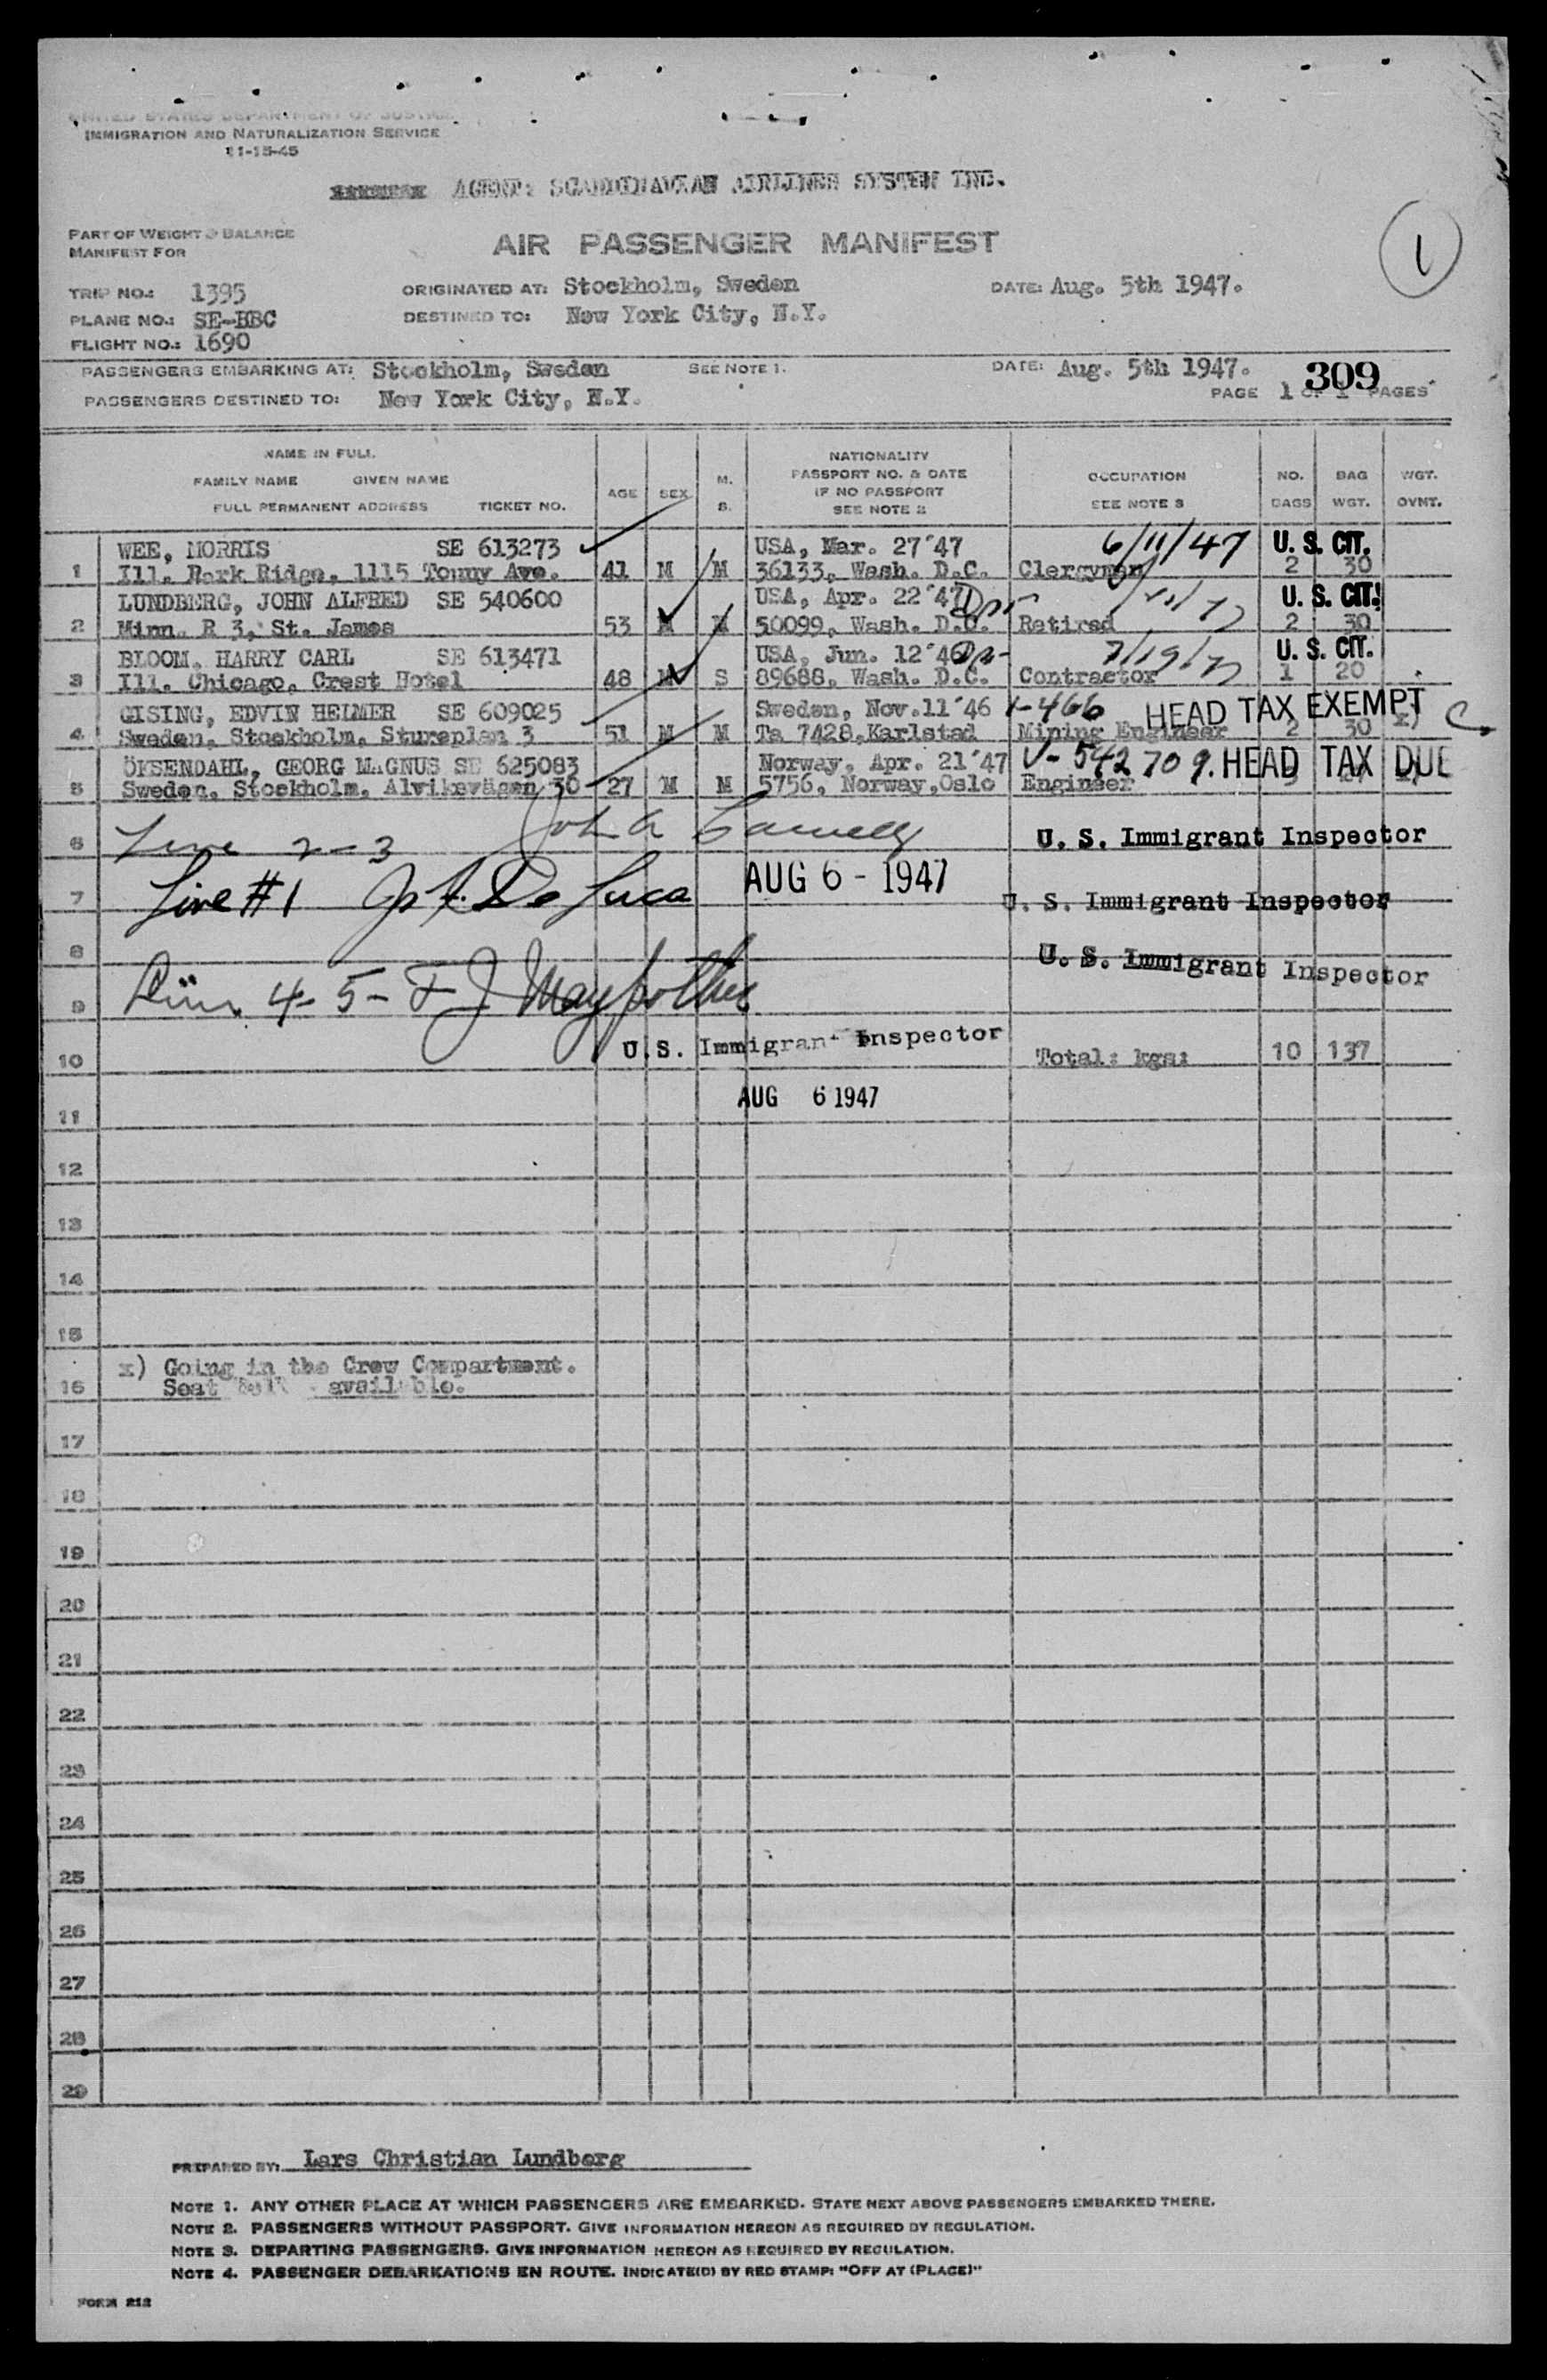 UNITED STATES DEPARTMENT OF JUSTICE
IMMIGRATION AND NATURALIZATION SERVICE
11-15-45
AGENT: SCANDINAVIAN AIRLINES SYSTEM INC.
PART OF WEIGHT & BALANCE
MANIFEST FOR
AIR PASSENGER MANIFEST
1
TRIP NO.: 1395 ORIGINATED AT: Stockholm, Sweden DATE: Aug. 5th 1947.
PLANE NO.: SE-BBC DESTINED TO: New York City, N.Y.
FLIGHT NO.: 1690
PASSENGERS EMBARKING AT: Stockholm, Sweden SEE NOTE 1. DATE: Aug. 5th 1947.
309
PASSENGERS DESTINED TO: New York City, N.Y. PAGE 1 OF 1 PAGES
NAME IN FULL
FAMILY NAME GIVEN NAME
FULL PERMANENT ADDRESS TICKET NO.
AGE SEX M. S.
NATIONALITY
PASSPORT NO. & DATE
IF NO PASSPORT
SEE NOTE 2
OCCUPATION
SEE NOTE 3
NO. BAGS
BAG WGT.
WGT. OVNT.
WEE, MORRIS SE 613273 USA, Mar. 27'47 6/11/47 U. S. CIT.
1 Ill. Park Ridge, 1115 Touny Ave. 41 M M 36133, Wash. D.C. Clergyman 2 30
LUNDBERG, JOHN ALFRED SE 540600 USA, Apr. 22'47 U. S. CIT.
2 Minn. R 3, St. James 53 M M 50099, Wash. D.C. Retired 2 30
BLOOM, HARRY CARL SE 613471 USA, Jun. 12'46 7/19/47 U. S. CIT.
3 Ill. Chicago, Crest Hotel 48 M S 89688, Wash. D.C. Contractor 1 20
GISING, EDVIN HELMER SE 609025 Sweden, Nov.11'46 V-466 HEAD TAX EXEMPT
4 Sweden, Stockholm, Stureplan 3 51 M M Ta 7428,Karlstad Mining Engineer 2 30 x) C
ÖKSENDAHL, GEORG MAGNUS SE 625083 Norway, Apr. 21'47 V-542709. HEAD TAX DUE
5 Sweden, Stockholm, Alviksvägen 30 27 M M 5756, Norway,Oslo Engineer 3
6 Line 2-3 John A U. S. Immigrant Inspector
7 Line #1 De Luca AUG 6 - 1947 U. S. Immigrant Inspector
8 U. S. Immigrant Inspector
9 Line 4-5- F J Maypother
U. S. Immigrant Inspector
10 Total: kgs: 10 137
AUG 6 1947
11
12
13
14
15
x) Going in the Crew Compartment.
16 Seat belt available.
17
18
19
20
21
22
23
24
25
26
27
28
29
PREPARED BY: Lars Christian Lundberg
NOTE 1. ANY OTHER PLACE AT WHICH PASSENGERS ARE EMBARKED. STATE NEXT ABOVE PASSENGERS EMBARKED THERE.
NOTE 2. PASSENGERS WITHOUT PASSPORT. GIVE INFORMATION HEREON AS REQUIRED BY REGULATION.
NOTE 3. DEPARTING PASSENGERS. GIVE INFORMATION HEREON AS REQUIRED BY REGULATION.
NOTE 4. PASSENGER DEBARKATIONS EN ROUTE. INDICATE(D) BY RED STAMP: "OFF AT (PLACE)"
FORM 212